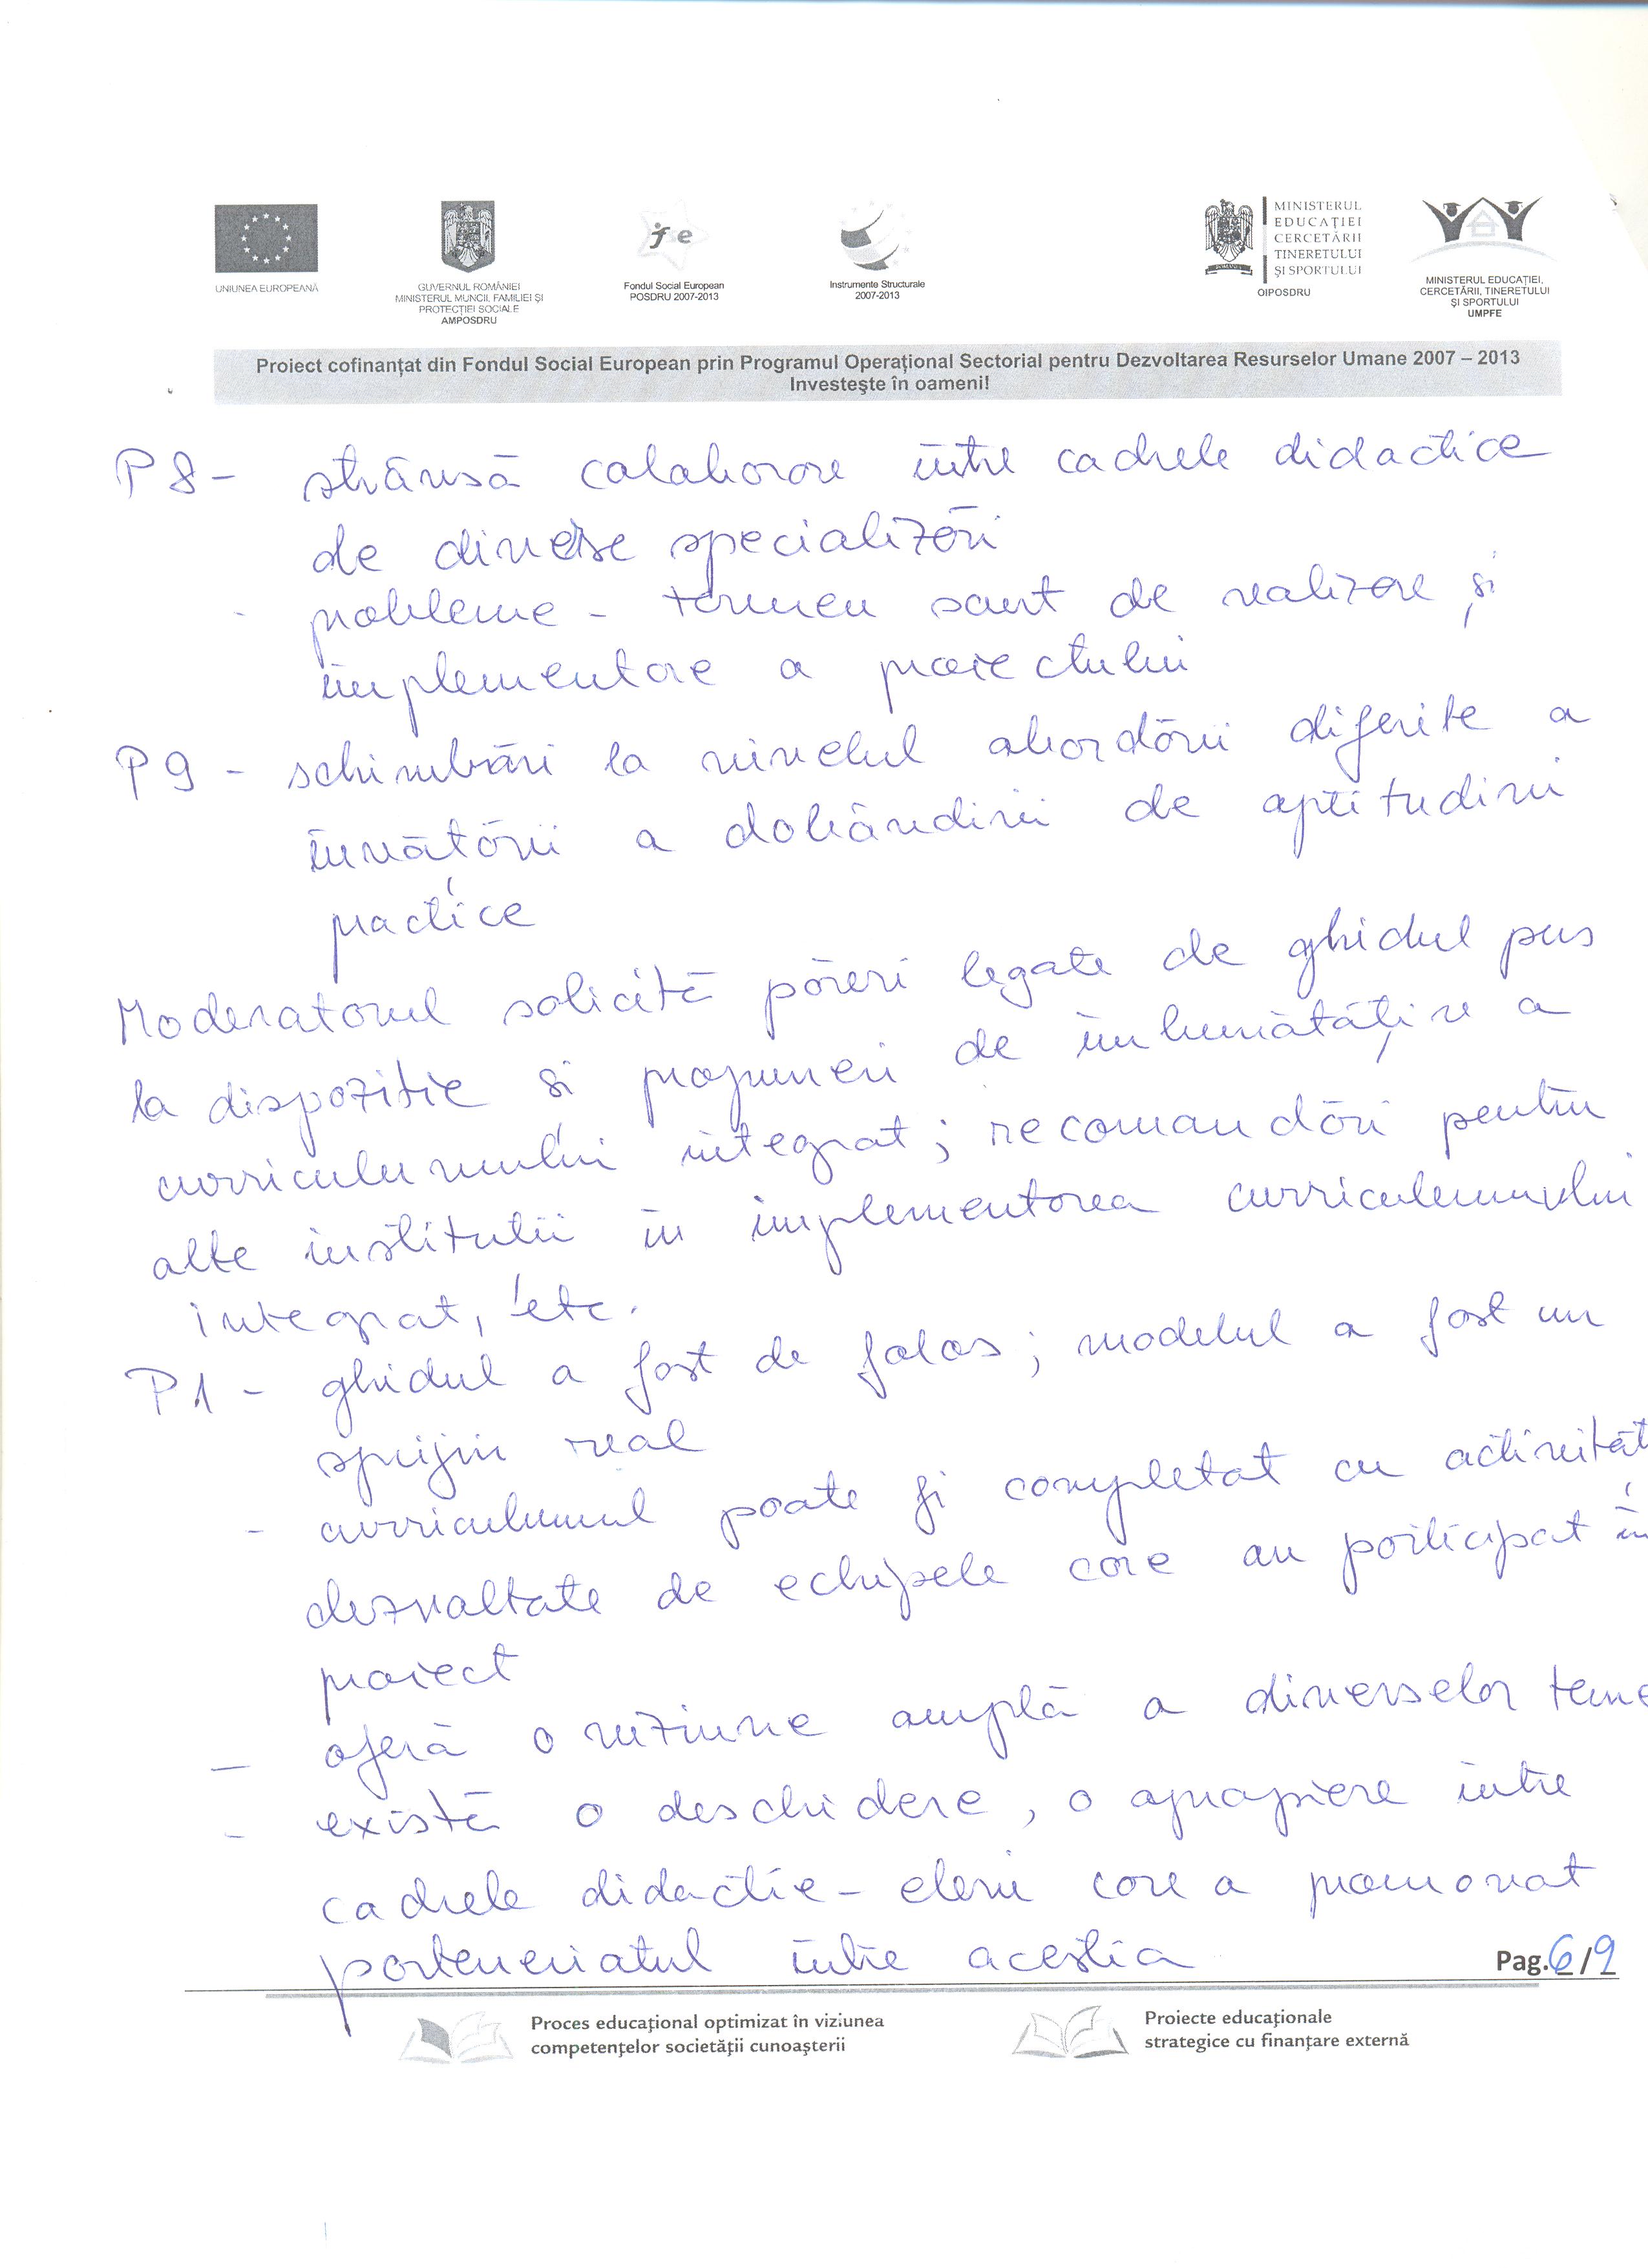 UNIUNEA EUROPEANĂ
GUVERNUL ROMÂNIEI
MINISTERUL MUNCII, FAMILIEI ŞI
PROTECŢIEI SOCIALE
AMPOSDRU
fse
Fondul Social European
POSDRU 2007-2013
Instrumente Structurale
2007-2013
MINISTERUL
EDUCAŢIEI
CERCETĂRII
TINERETULUI
ŞI SPORTULUI
OIPOSDRU
MINISTERUL EDUCAŢIEI,
CERCETĂRII, TINERETULUI
ŞI SPORTULUI
UMPFE
Proiect cofinanţat din Fondul Social European prin Programul Operaţional Sectorial pentru Dezvoltarea Resurselor Umane 2007 – 2013
Investeşte în oameni!
P8 - strânsă colaborare între cadrele didactice
de diverse specializări
- probleme - termen scurt de realizare și
implementare a proiectului
P9 - schimbări la nivelul abordării diferite a
învătării a dobândirii de aptitudini
practice
Moderatorul solicită păreri legate de ghidul pus
la dispozitie si propuneri de îmbunătățire a
curriculumului integrat; recomandări pentru
alte institutii în implementarea curriculumului
integrat, etc.
P1 - ghidul a fost de folos; modelul a fost un
sprijin real
- curriculumul poate fi completat cu activităț
dezvoltate de echipele care au participat în
proiect
- oferă o viziune amplă a diverselor teme
- există o deschidere, o apropiere între
cadrele didactice - elevi care a promovat
parteneriatul între acestia
Pag.6/9
Proces educaţional optimizat în viziunea
competenţelor societăţii cunoaşterii
Proiecte educaţionale
strategice cu finanţare externă